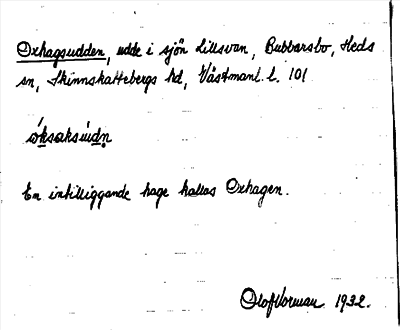 Oxhagsudden, udde i sjön Lillsvan, Bubbarsbo, Heds
sn, Skinnskattebergs hd, Västmanl. l. 101
En intilliggande hage kallas Oxhagen.
Olof Norman 1932.